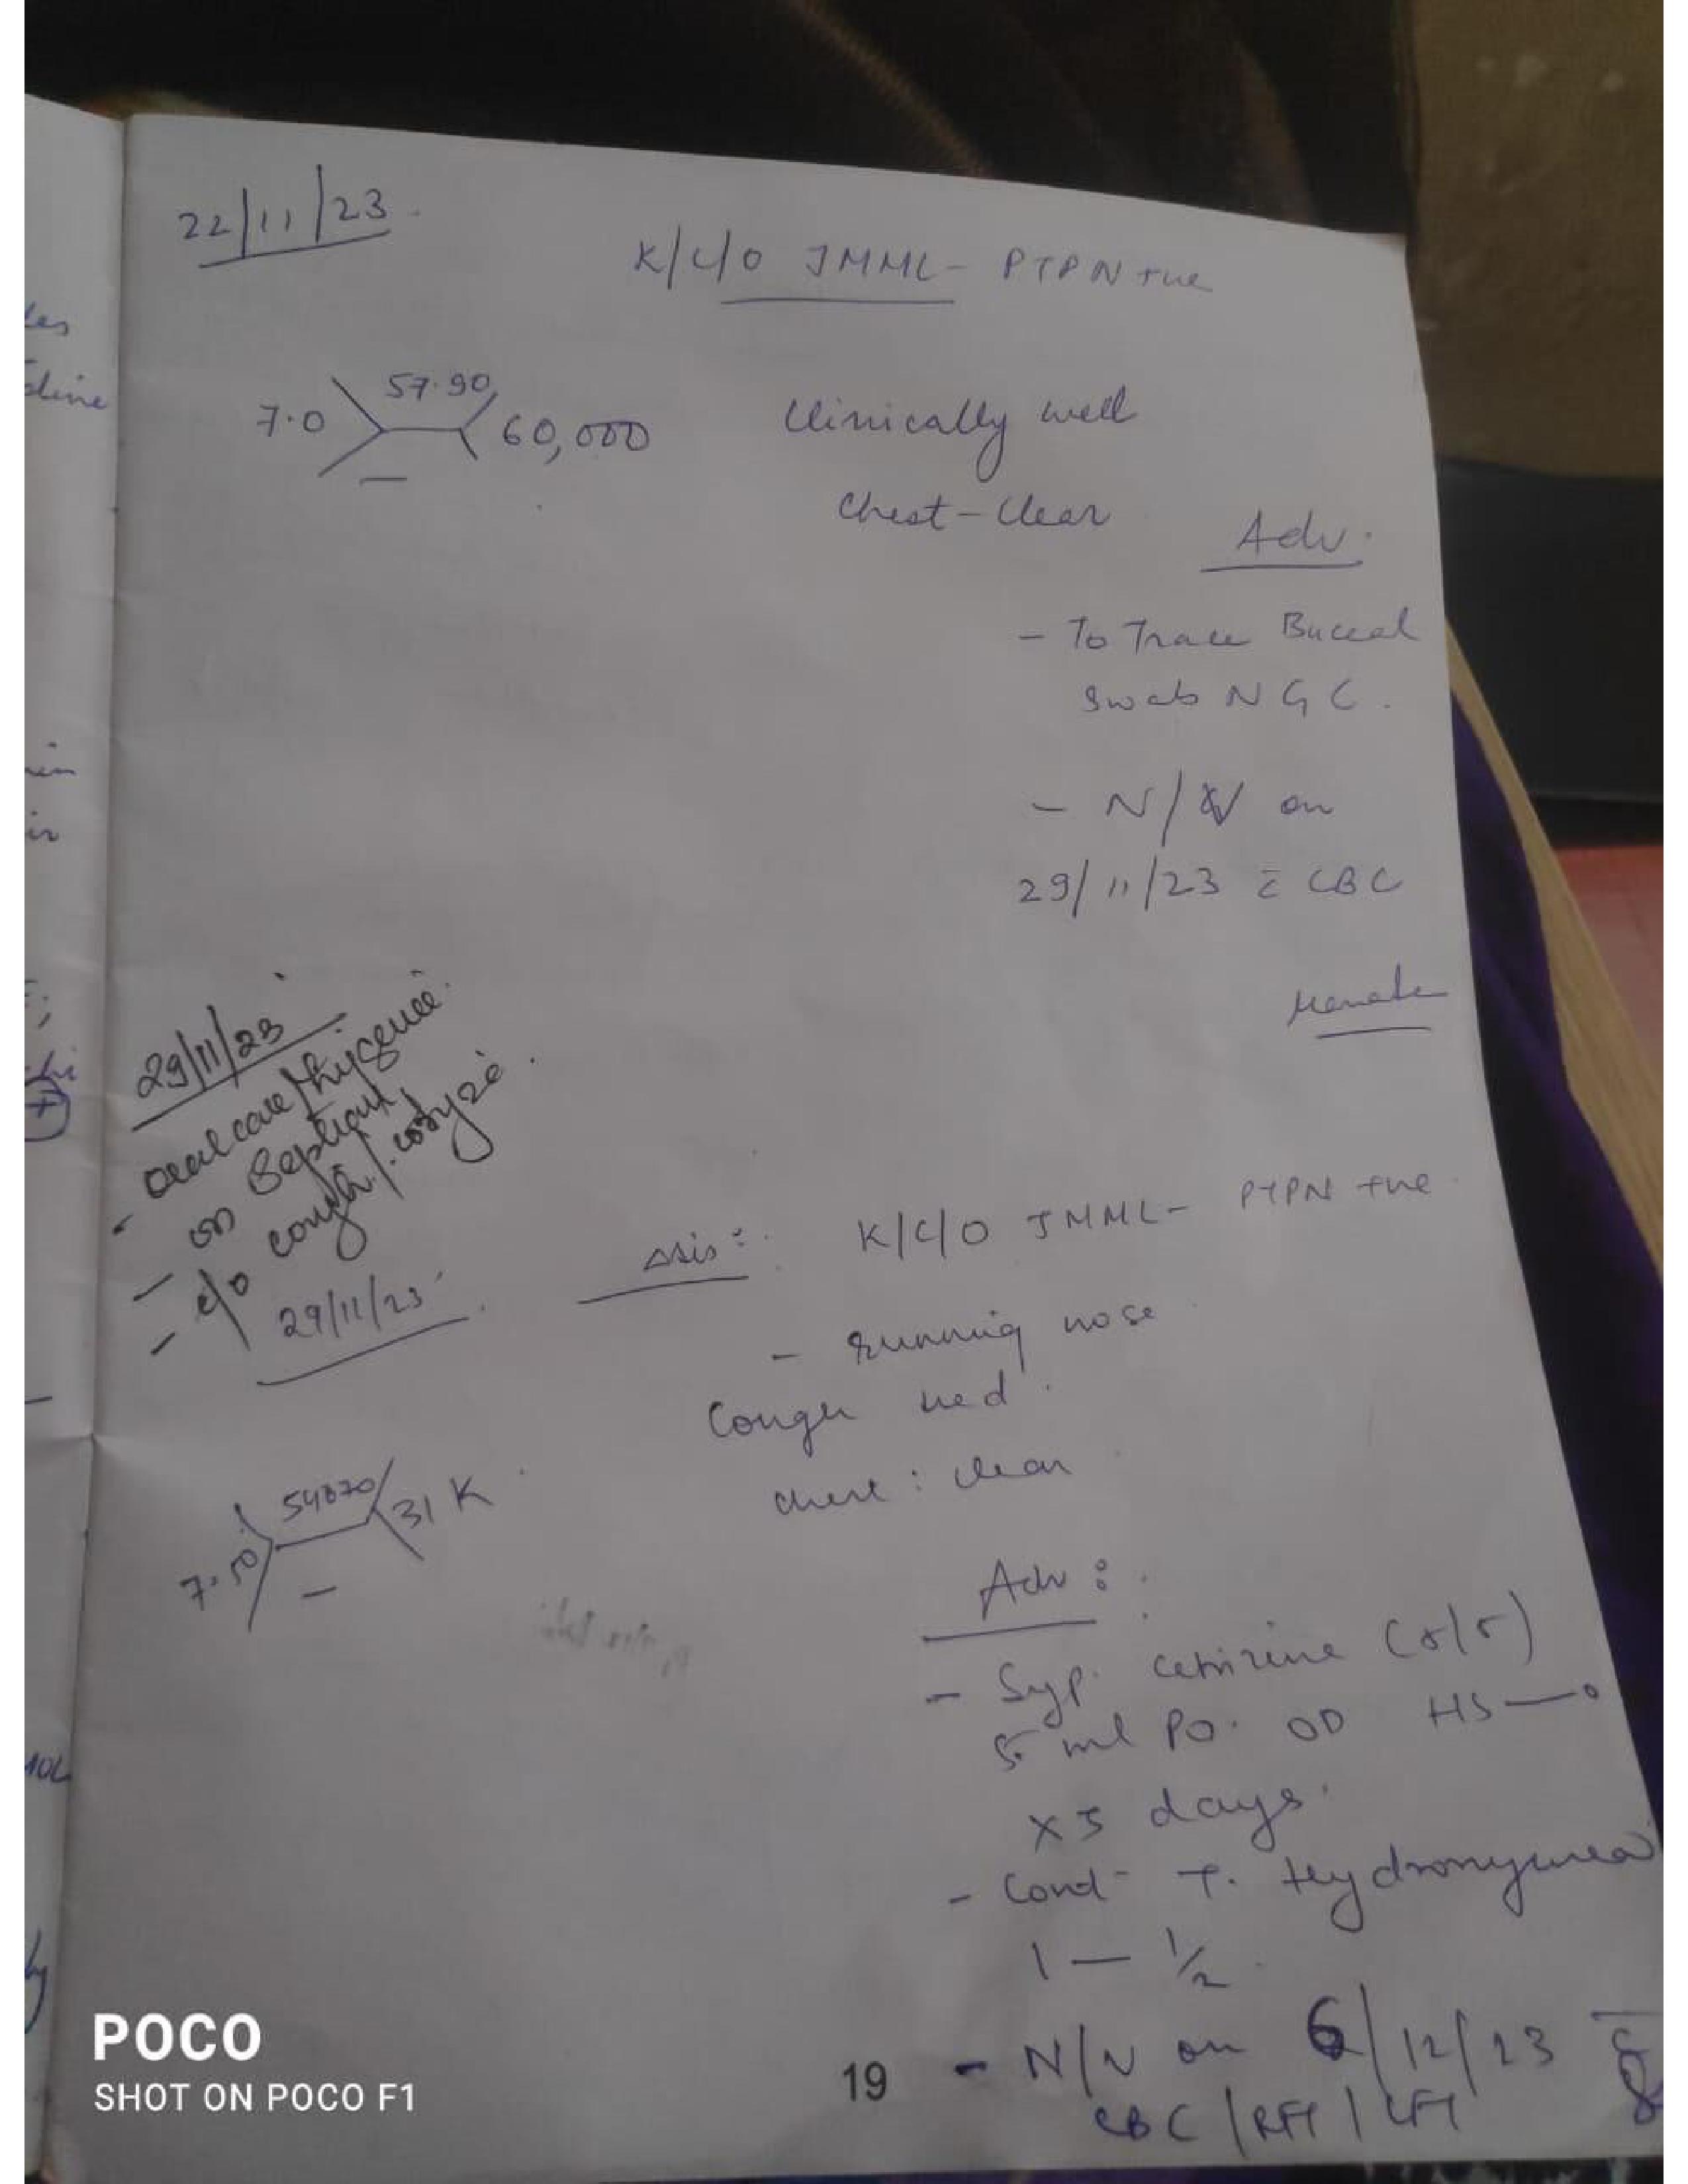 22/11/23
K/C/O JMML- PTPN +ve
7.0 57.90 60,000
Clinically well
Chest-Clear
Adv.
- To Trace Buccal
Swab NGC.
- N/V on
29/11/23 c̄ CBC
29/11/23
- oral care/hygenie.
- on Septran
- c/o cough/coryza.
29/11/23
Δsis: K/C/O JMML- PTPN +ve
- running nose
chest: clear
7.50 54070 31K
Adv:
- Syp. cetrizine (5/5)
5 ml PO. OD HS
x5 days.
- Cont T. Hydroxyurea
1 — 1/2
- N/V on 6/12/23 c̄
CBC/RFT/LFT
19
les
dine
POCO
SHOT ON POCO F1